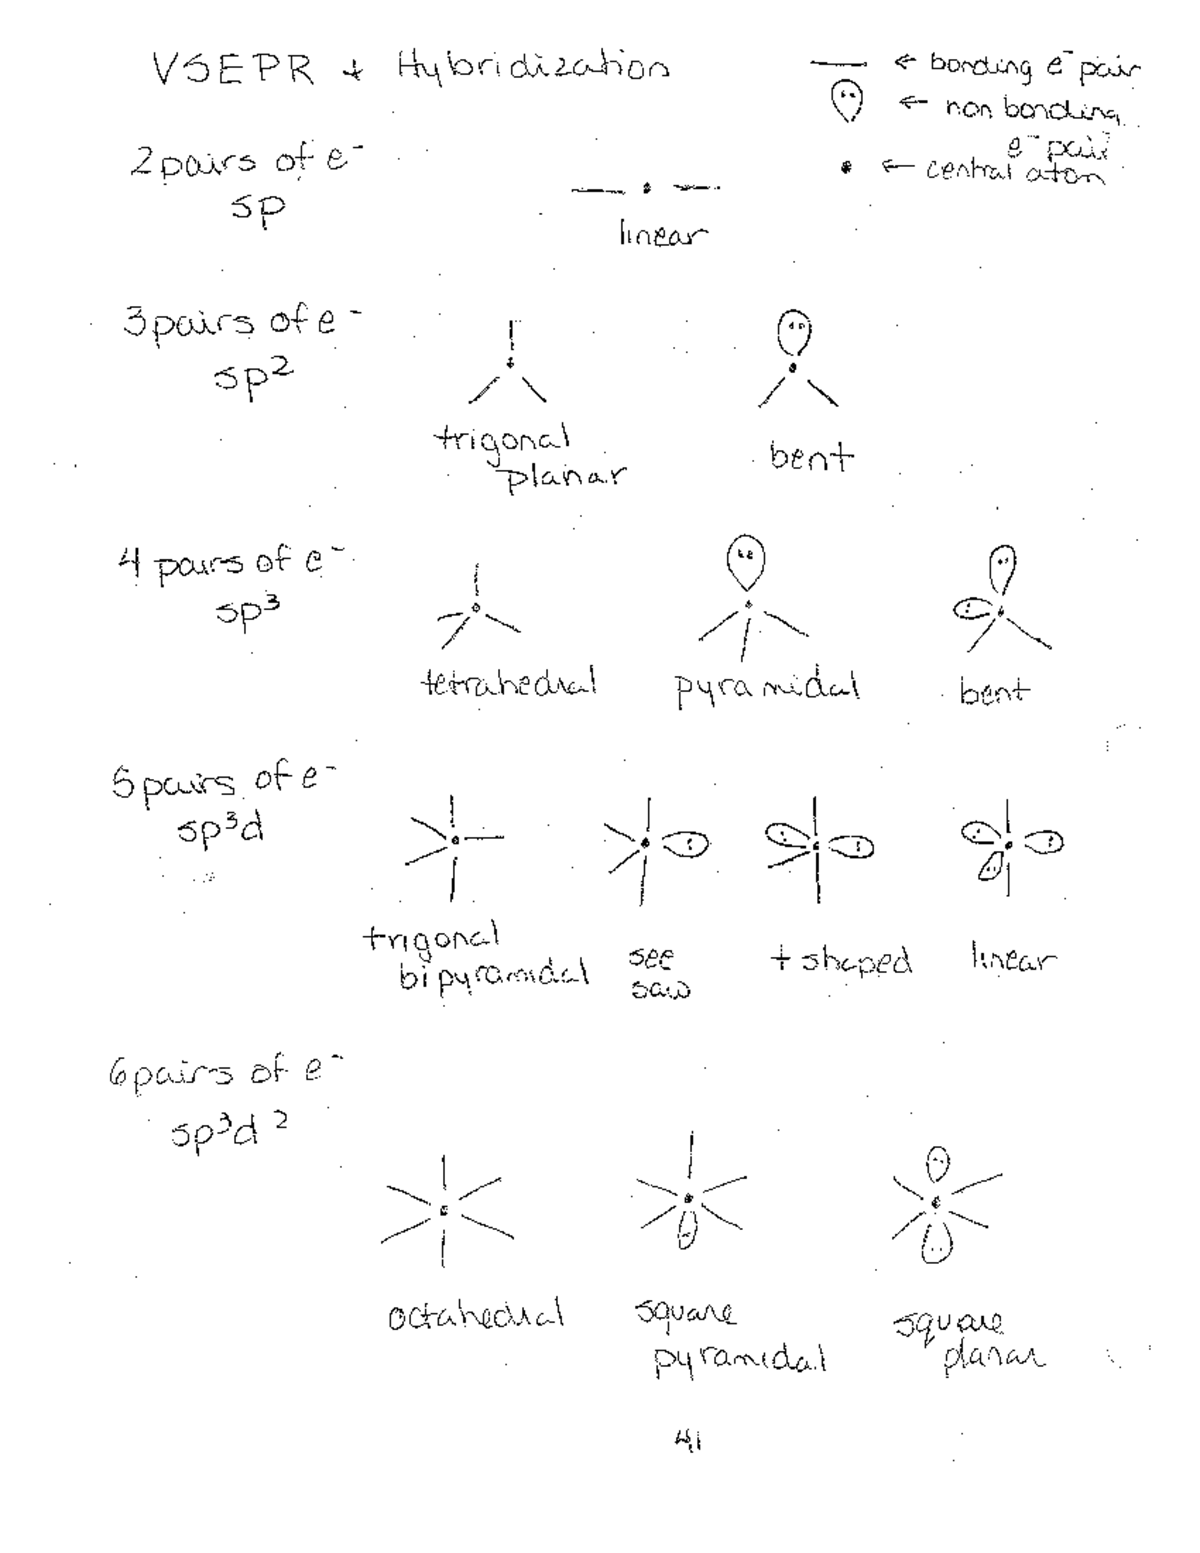 VSEPR + Hybridization
← bonding e⁻ pair
← non bonding
e⁻ pair
← central atom
2 pairs of e⁻
sp
linear
3 pairs of e⁻
sp²
trigonal
planar
bent
4 pairs of e⁻
sp³
tetrahedral
pyramidal
bent
5 pairs of e⁻
sp³d
trigonal
bipyramidal
see
saw
t shaped
linear
6 pairs of e⁻
sp³d²
octahedral
square
pyramidal
square
planar
41